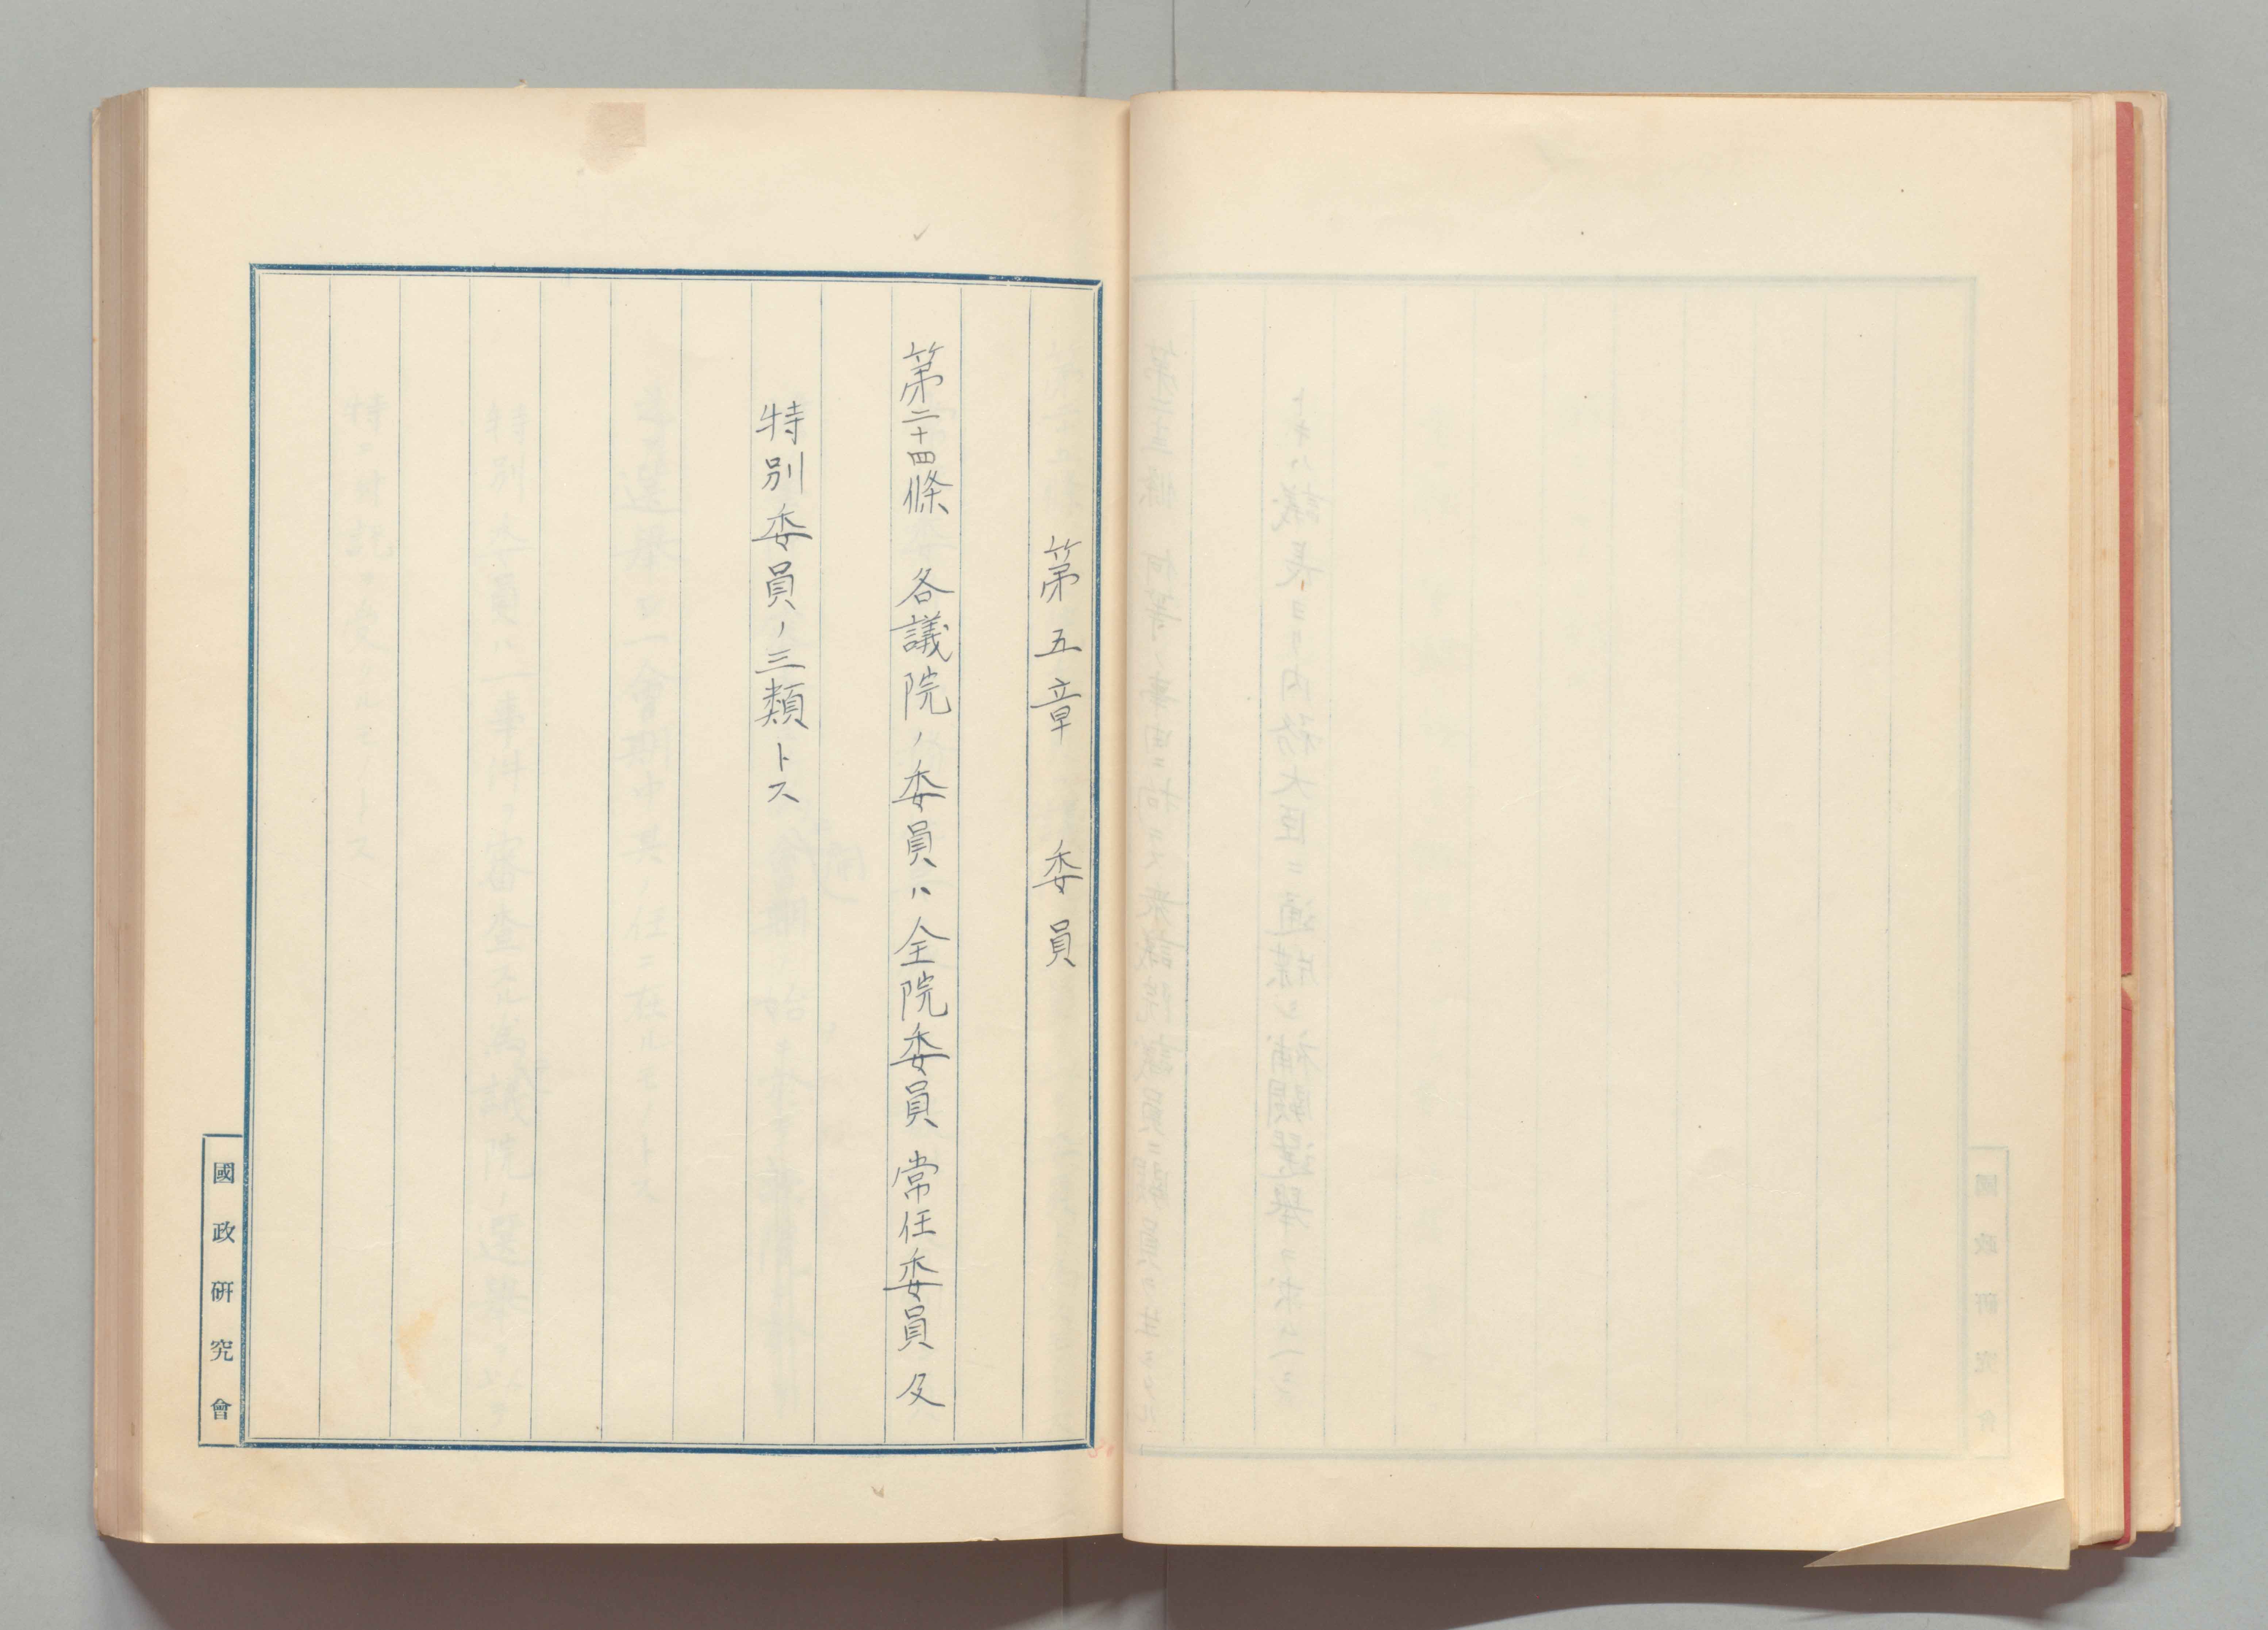 第五章 委員
第二十四條 各議院ノ委員ハ全院委員常任委員及
特別委員ノ三類トス
國政研究會